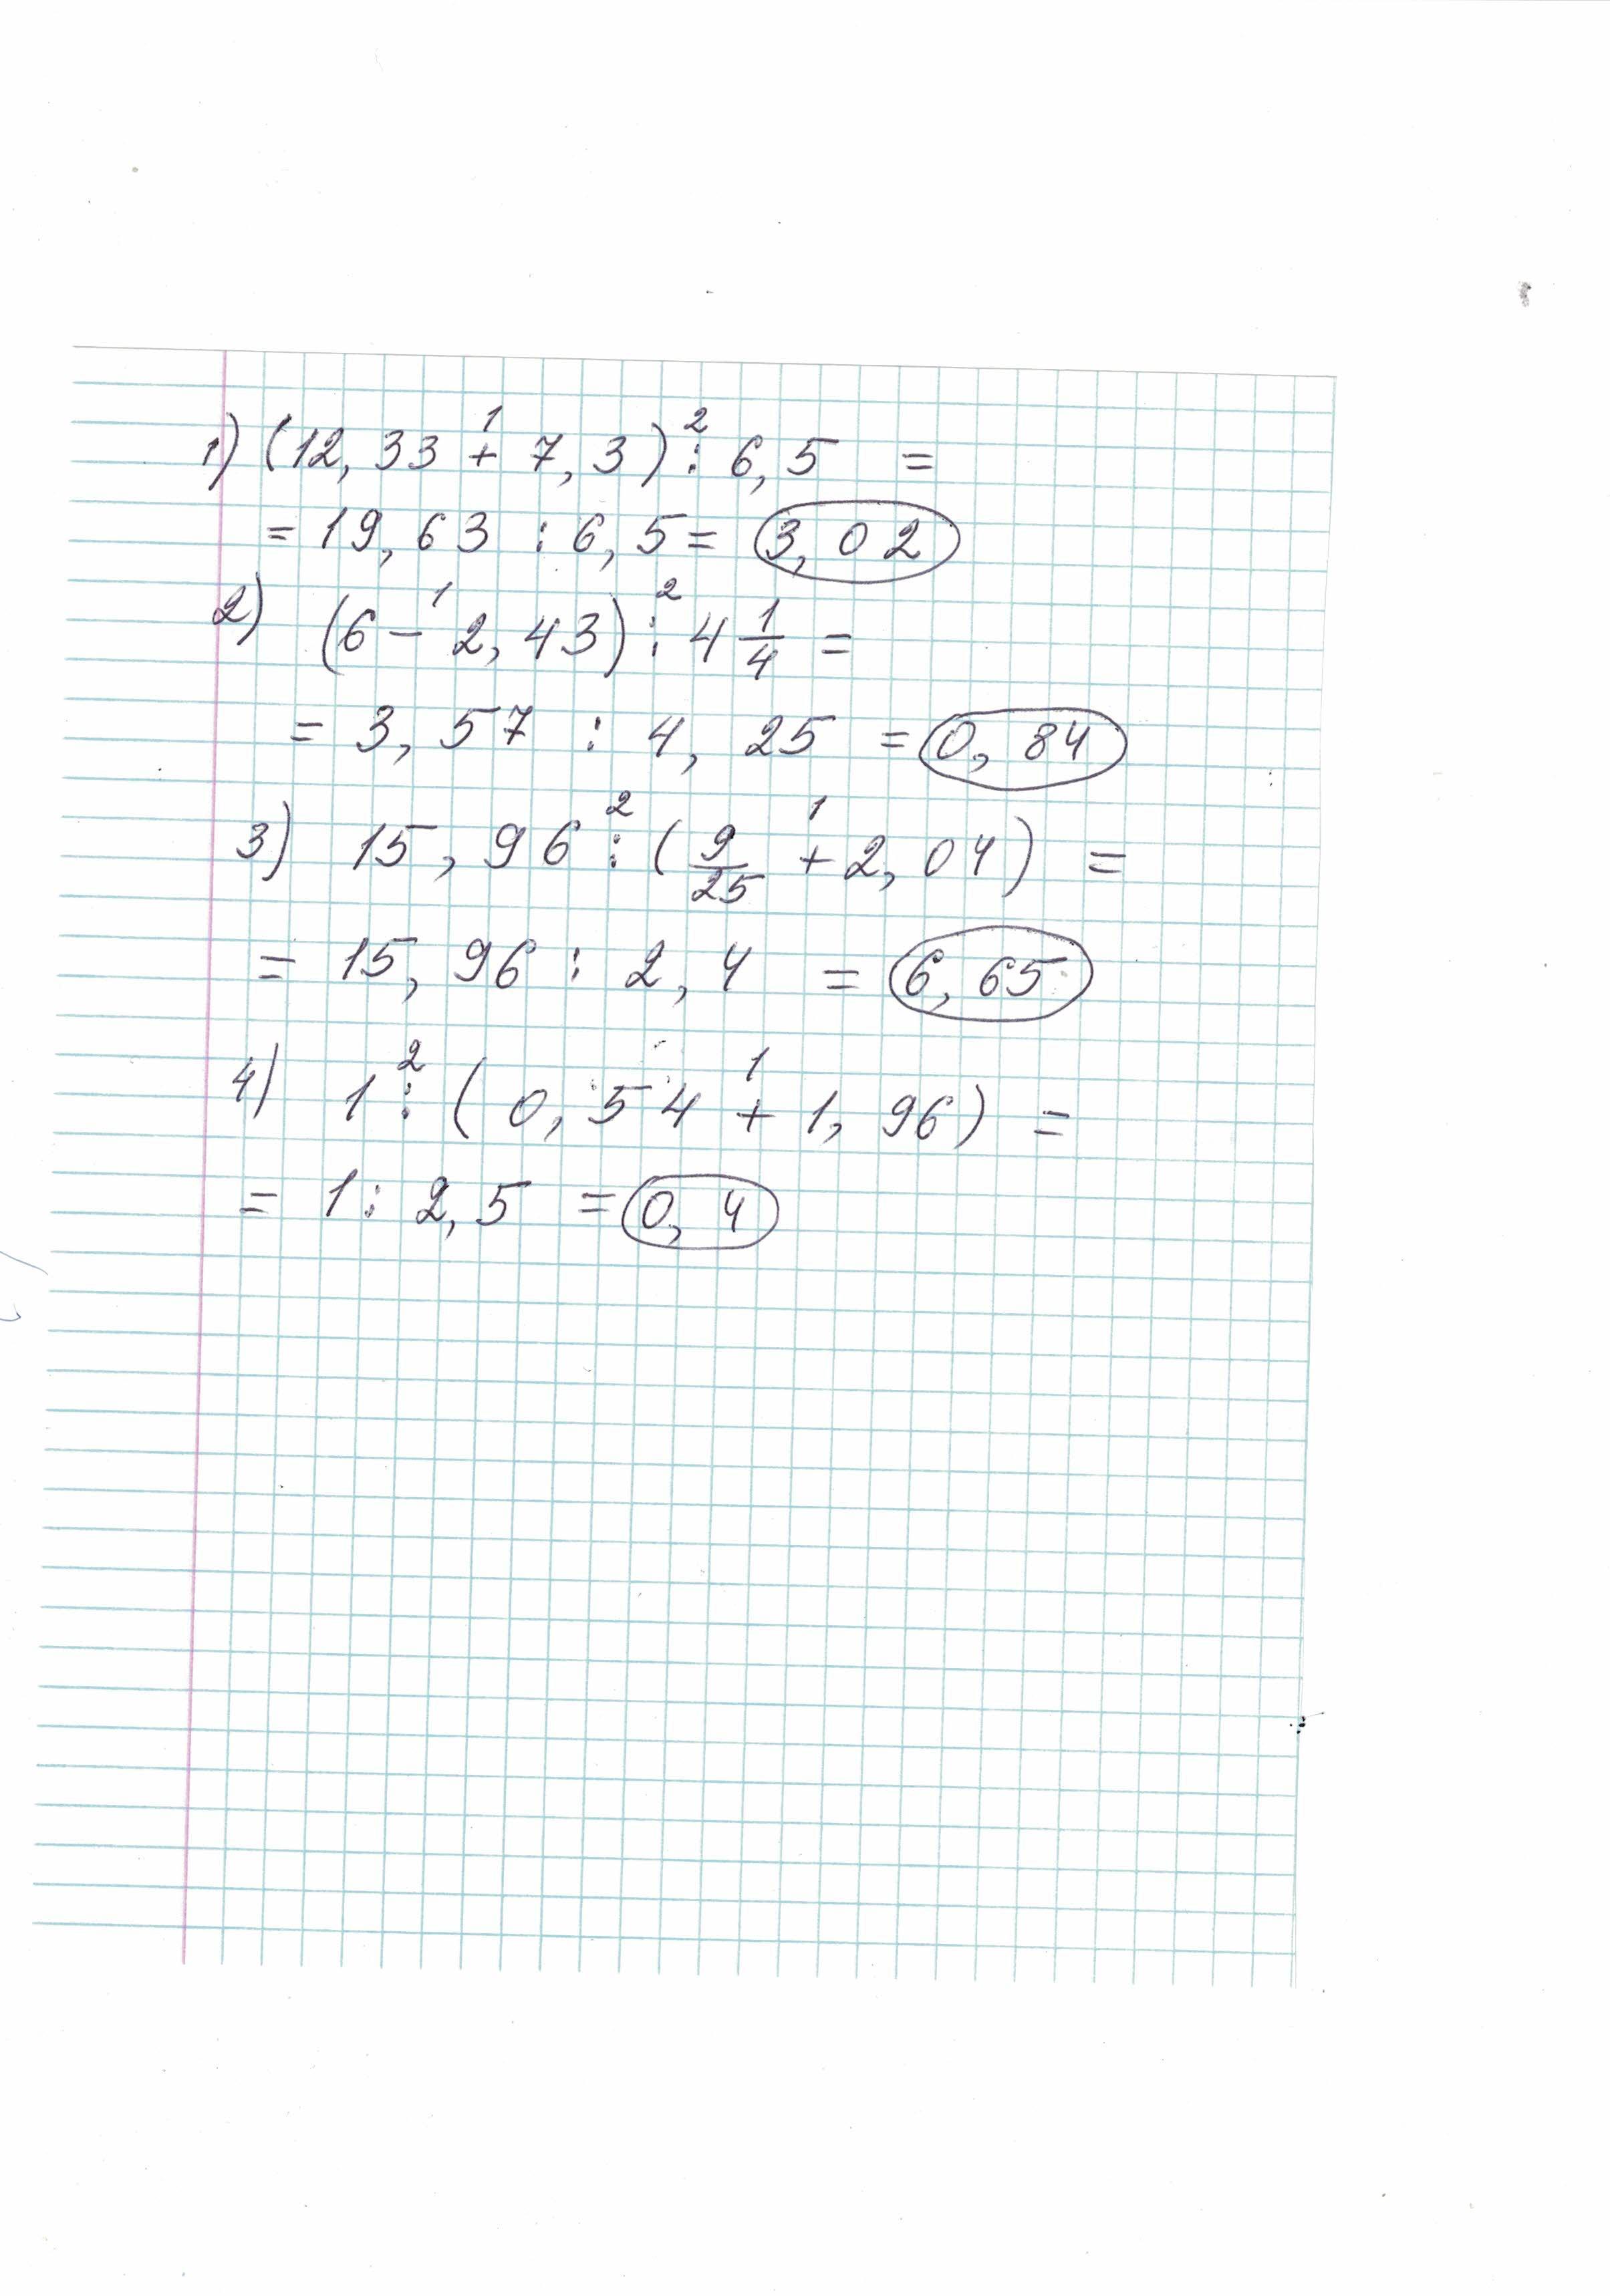 1) (12,33 +¹ 7,3) :² 6,5 =
= 19,63 : 6,5 = 3,02
2) (6 −¹ 2,43) :² 4 1/4 =
= 3,57 : 4,25 = 0,84
3) 15,96 :² (9/25 +¹ 2,04) =
= 15,96 : 2,4 = 6,65
4) 1 :² (0,54 +¹ 1,96) =
= 1 : 2,5 = 0,4